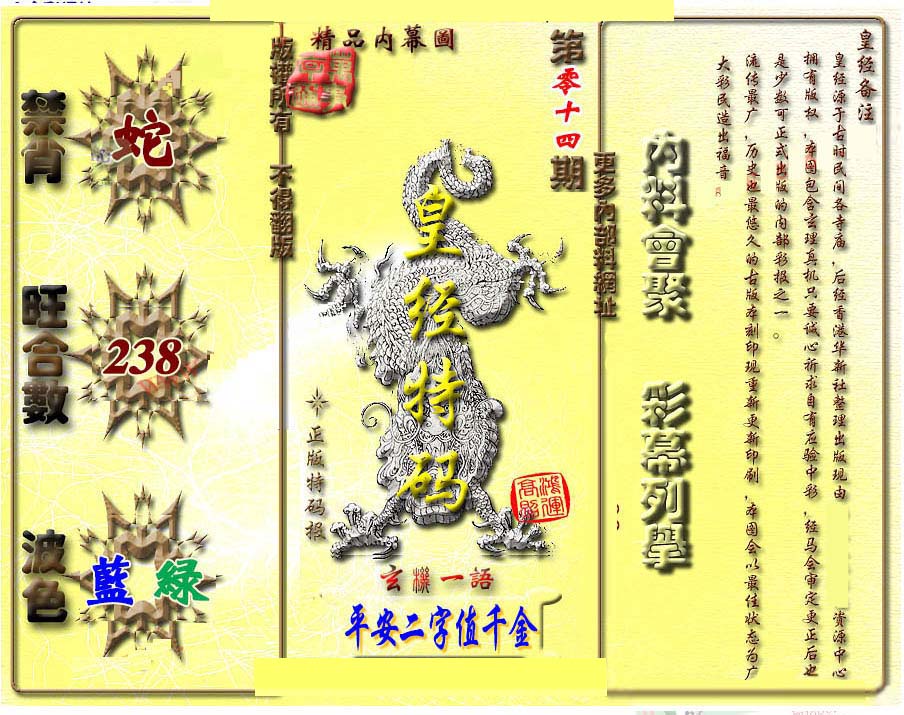 精品內幕圖
第零十四期
版權所有 不得翻版
更多內部料網址
禁肖
蛇
旺合數
238
波色
藍 綠
皇经特码
正版特码报
鴻運高照
玄機一語
平安二字值千金
內料會聚
彩幕列舉
皇经备注
皇经源于古时民间各寺庙，后经香港华新社整理出版现由 资源中心
拥有版权，本图包含玄理真机只要诚心祈求自有应验中彩，经马会审定更正后也
是少数可正式出版的内部彩报之一。
流传最广，历史也最悠久的古版本刻印现重新更新印刷，本图会以最佳状态为广
大彩民造出福音